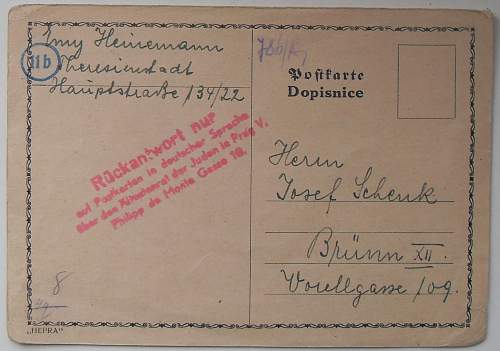 Emy Heinemann
Theresienstadt
Hauptstraße 134/22
11b
Postkarte
Dopisnice
Rückantwort nur
auf Postkarten in deutscher Sprache
über den Ältestenrat der Juden in Prag V.
Philipp de Monte Gasse 18.
Herrn
Josef Schenk
Brünn XII.
Vorellgasse 109.
8
„HEPRA"